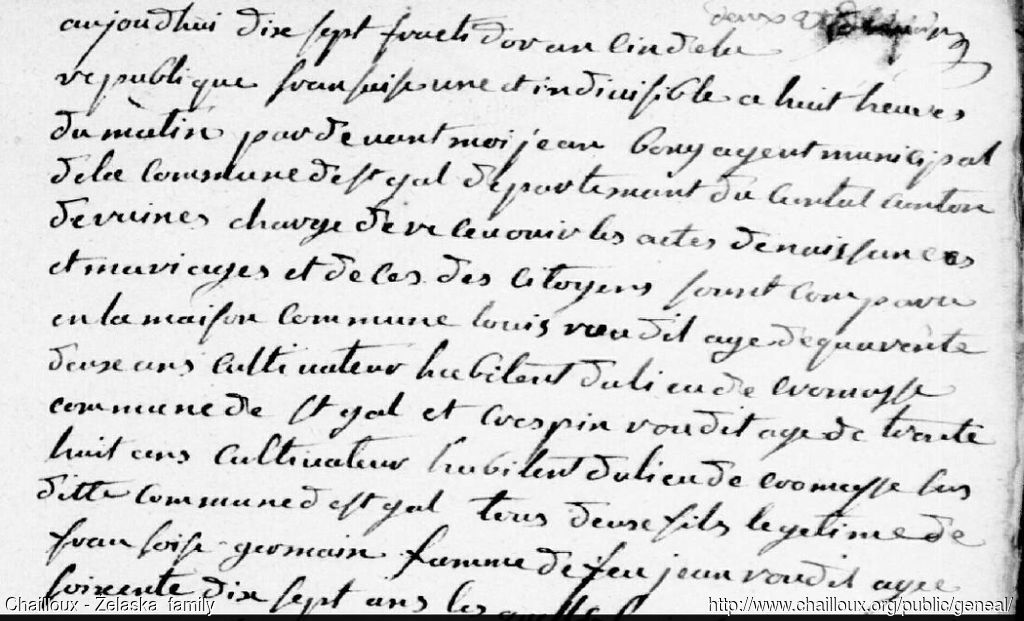 aujourdhui dix sept fructidor an cin dela
republique fransaise une et indivisible a huit heures
du matin par devant moi jean bony agent municipal
dela commune de st gal departemant du cantal canton
de ruines charge de recevouir les actes de naissances
et mariages et deces des citoyens sount comparu
en la maison commune louis voudit age de quarente
deux ans cultivateur habitent du lieu de cromasse
commune de st gal et crespin voudit age de trente
huit ans cultivateur habitent du lieu de cromasse sus
ditte commune de st gal tous deux fils legetime de
fransoise germain famme de feu jean voudit agee
soixente dix sept ans les
Chailloux - Zelaska family
http://www.chailloux.org/public/geneal/